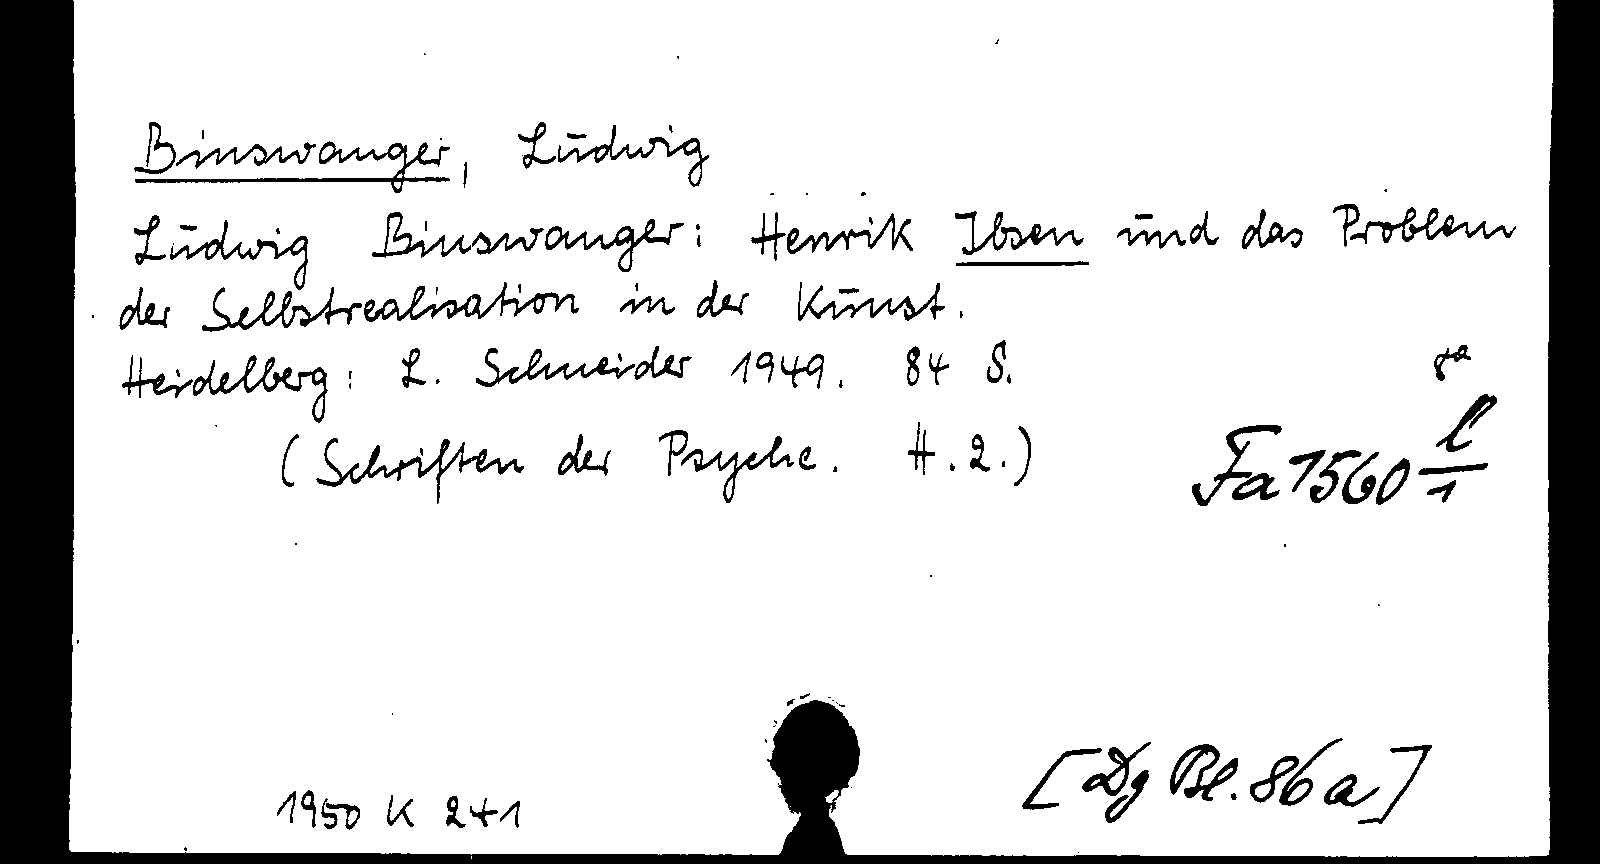 Binswanger, Ludwig
Ludwig Binswanger: Henrik Ibsen und das Problem
der Selbstrealisation in der Kunst.
Heidelberg: L. Schneider 1949. 84 S.
8a
(Schriften der Psyche. H. 2.)
Fa 1560 l/1
1950 K 241
[Dg Bl. 86a]